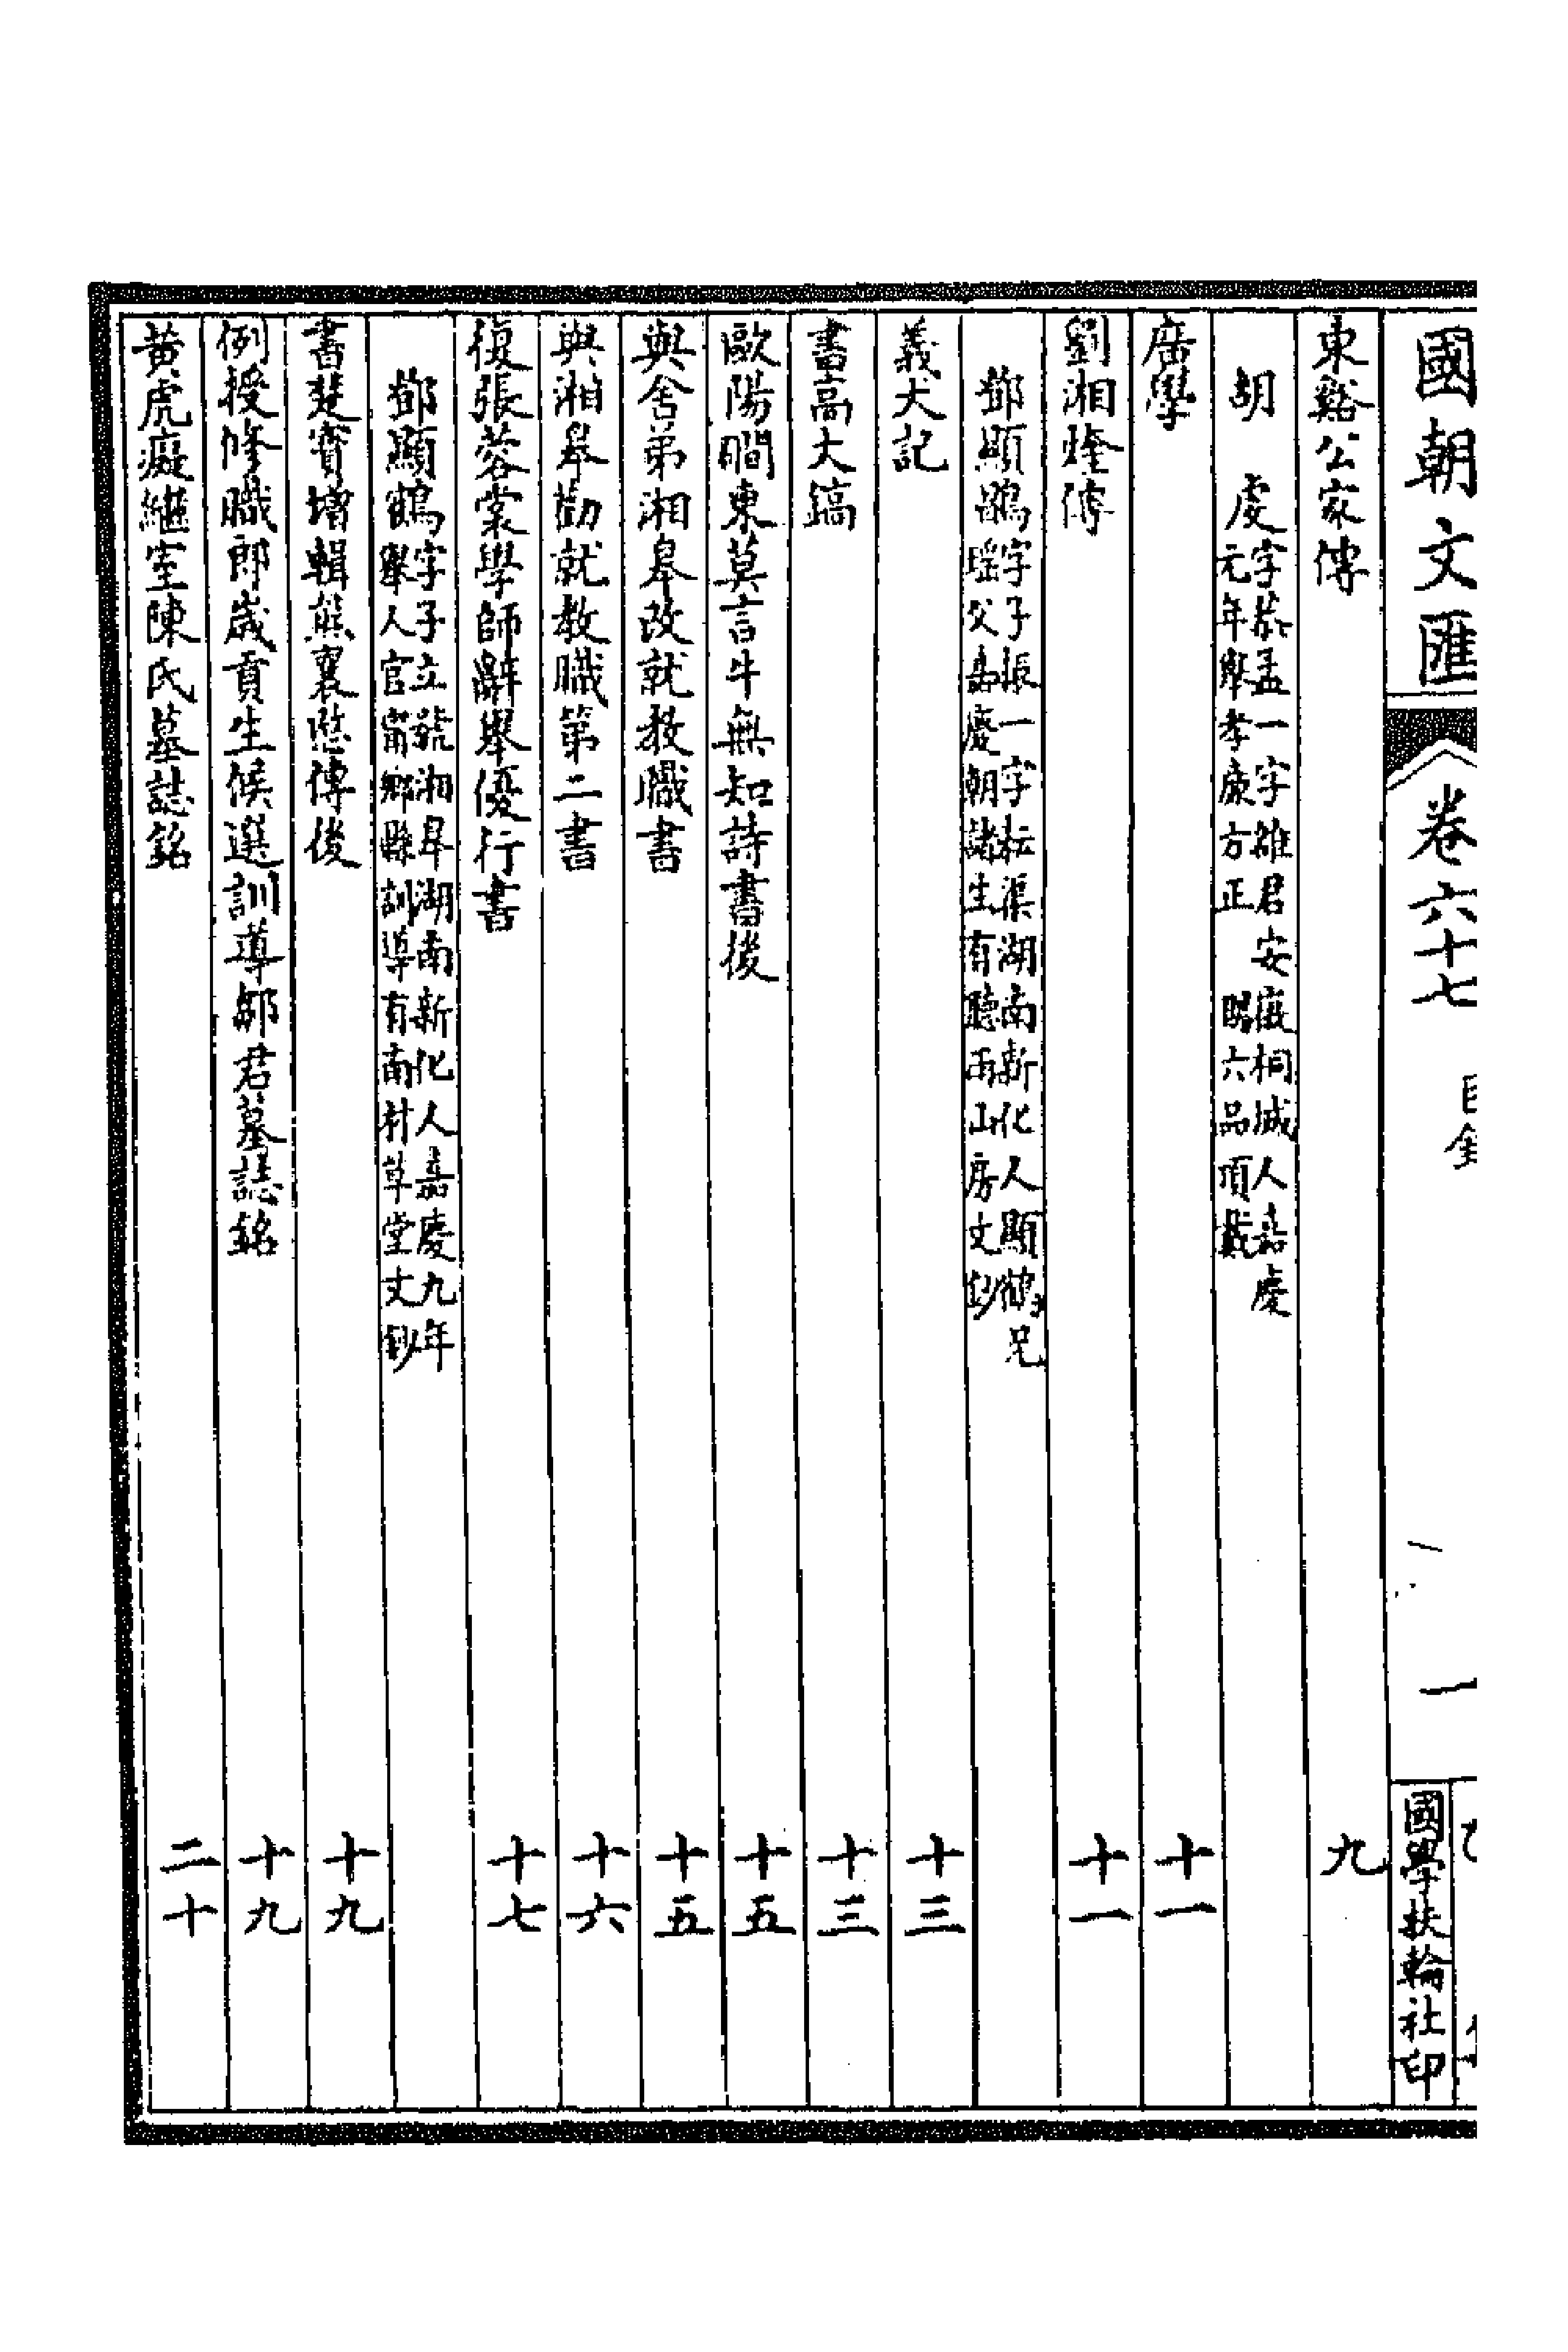 國朝文匯 卷六十七 目錄 一 國學扶輪社印
東谿公家傳 九
胡虔 字恭孟一字雒君安徽桐城人嘉慶
元年舉孝廉方正 賜六品頂戴
廣學 十一
劉湘煃傳 十一
鄧顯鶤 字子振一字耘渠湖南新化人顯鶴兄
瑶父嘉慶朝諸生有聽雨山房文鈔
義犬記 十三
書高大鎬 十三
歐陽磵東莫言牛無知詩書後 十五
與舍弟湘皋改就教職書 十五
與湘皋勸就教職第二書 十六
復張蓉裳學師辭舉優行書 十七
鄧顯鶴 字子立號湘皋湖南新化人嘉慶九年
舉人官甯鄉縣訓導有南村草堂文鈔
書楚寶增輯熊襄愍傳後 十九
例授修職郎歲貢生候選訓導鄒君墓誌銘 十九
黃虎癡繼室陳氏墓誌銘 二十